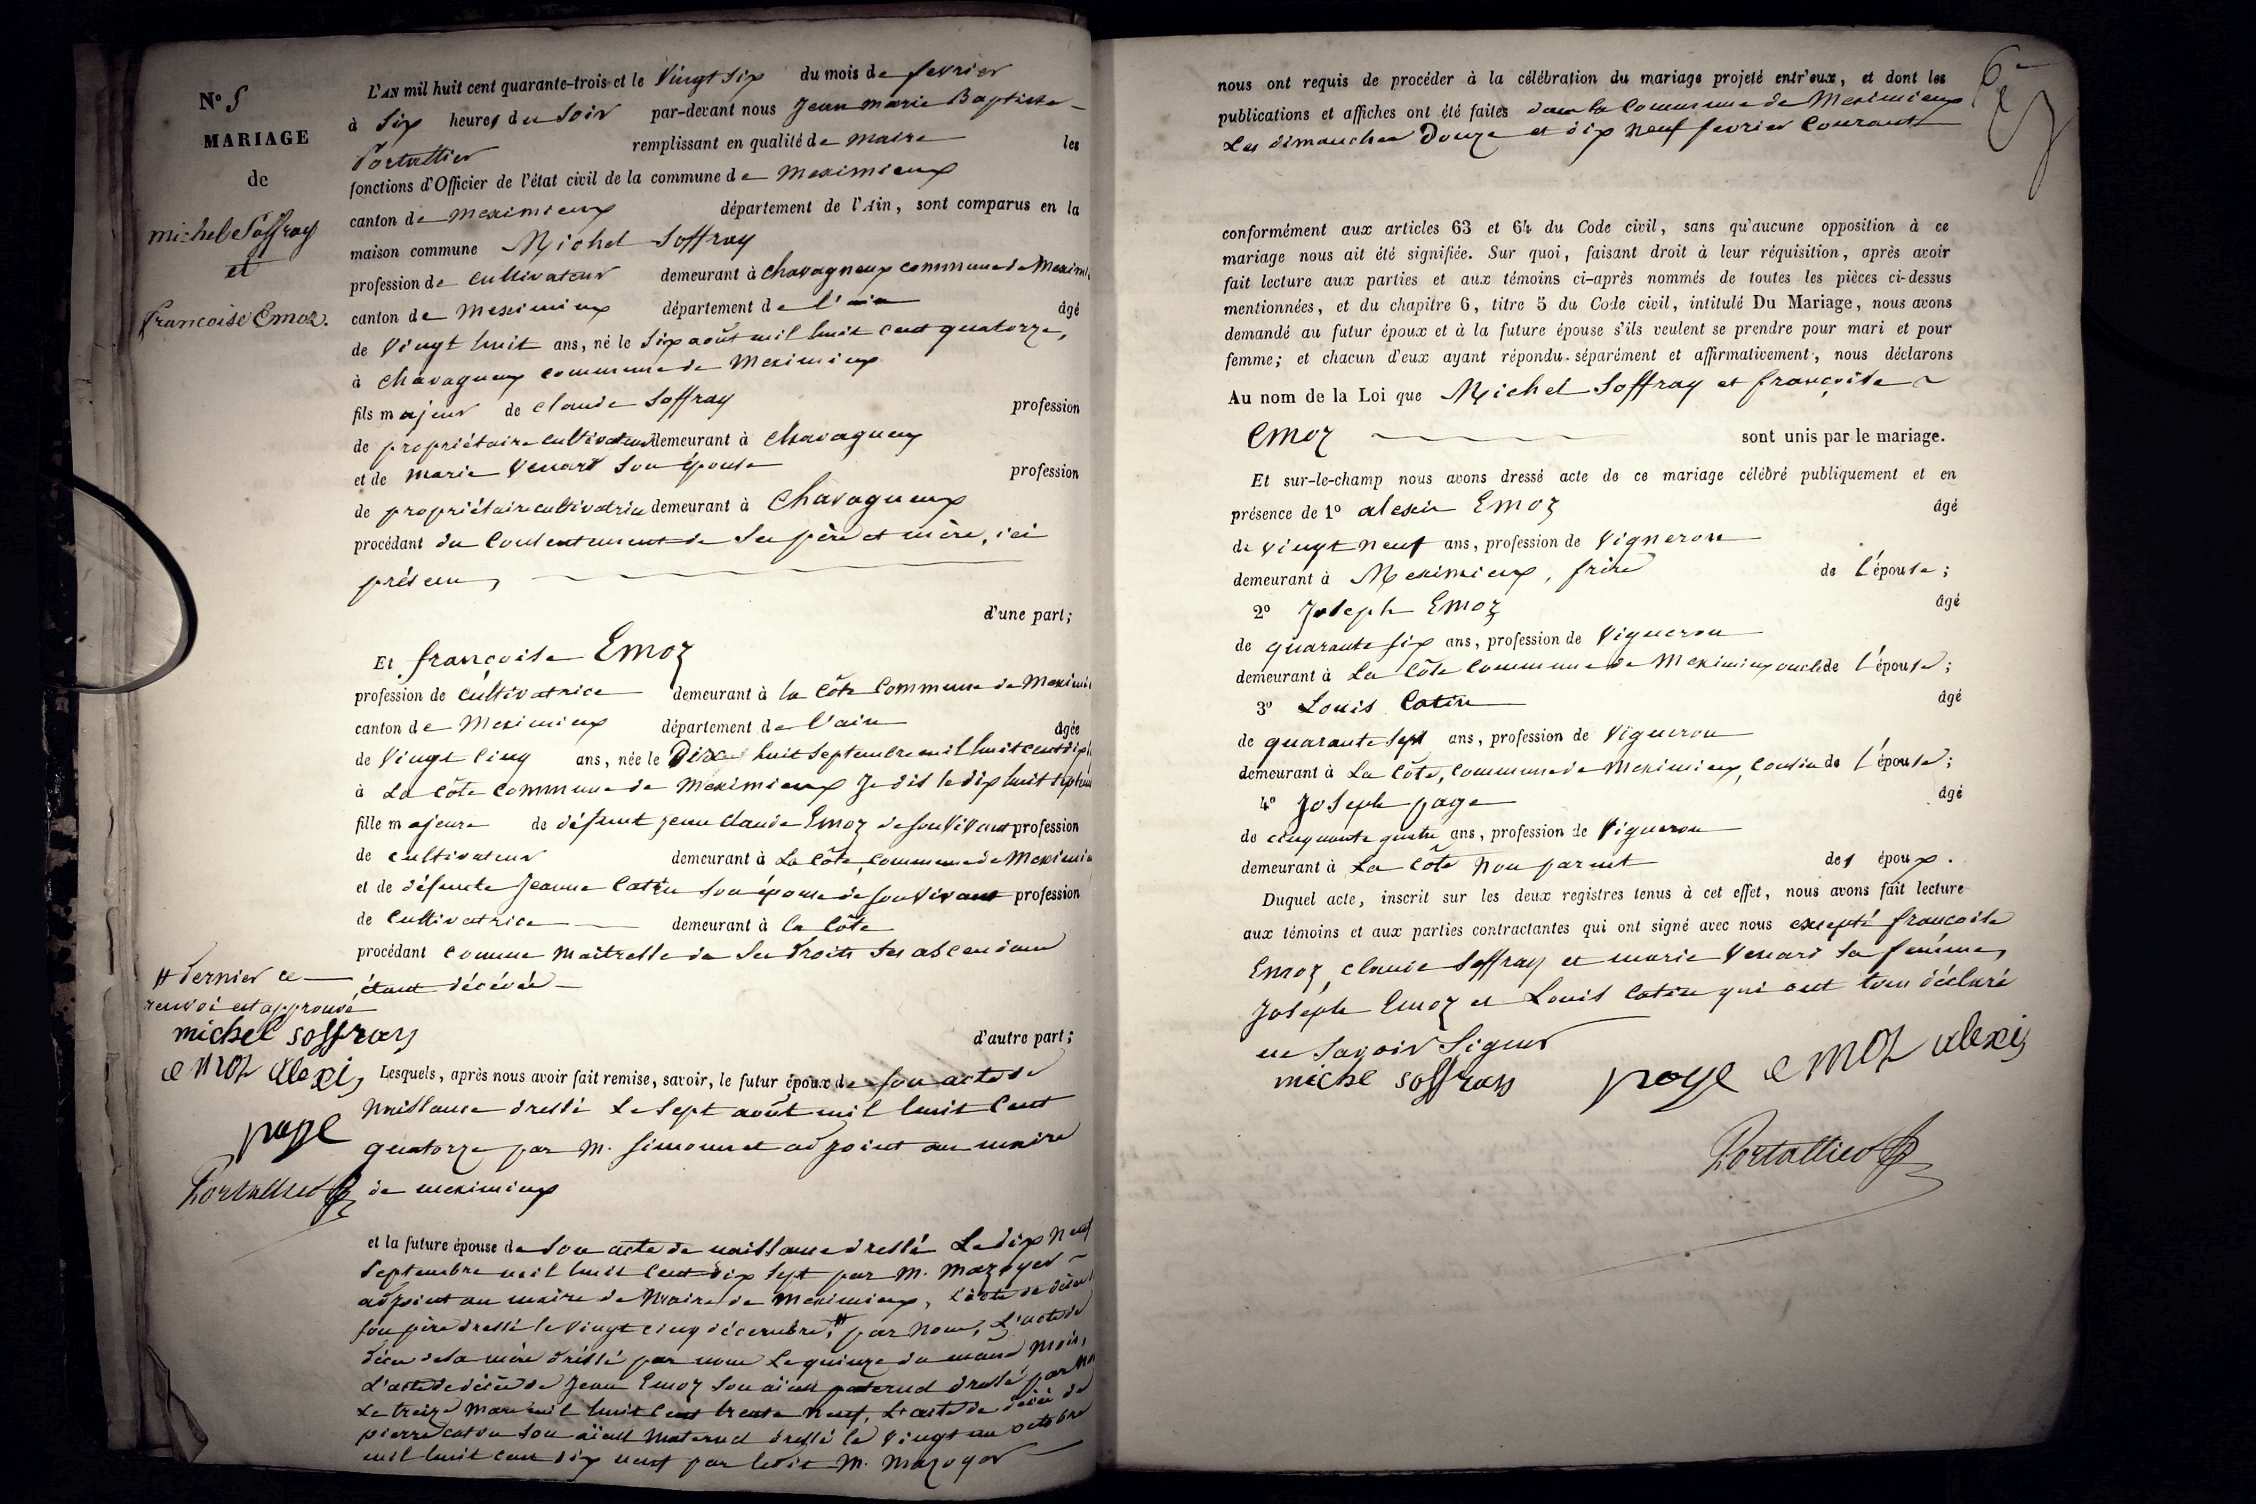 N° 5
MARIAGE
de
michel Soffray
et
francoise Emoz.
L'AN mil huit cent quarante-trois et le Vingt six du mois de fevrier
à Six heures du Soir par-devant nous Jean marie Baptiste
Portallier remplissant en qualité de maire les
fonctions d'Officier de l'état civil de la commune de meximieux
canton de meximieux département de l'Ain, sont comparus en la
maison commune Michel Soffray
profession de cultivateur demeurant à chavagneux commune de Meximi
canton de meximieux département de l'ain âgé
de Vingt huit ans, né le Six août mil huit cent quatorze,
à chavagneux commune de Meximieux
fils majeur de claude Soffray profession
de propriétaire cultivateur demeurant à chavagneux
et de marie Venard Son épouse profession
de propriétaire cultivatrice demeurant à chavagneux
procédant du Consentement de Ses père et mère, ici
présens,
d'une part;
Et françoise Emoz
profession de cultivatrice demeurant à la Côte Commune de Meximi
canton de Meximieux département de l'ain âgée
de Vingt Cinq ans, née le Dix huit Septembre mil huit cent dix
à La Côte Commune de Meximieux Je dis le dix huit Septem
fille majeure de défunt jean Claude Emoz de Son Vivant profession
de cultivateur demeurant à La Côte, Commune de Meximi
et de défunte Jeanne Catin Son épouse de Son Vivant profession
de Cultivatrice demeurant à la Côte
procédant comme Maitresse de Ses Droits Ses ascendans
étant décédés
d'autre part;
# dernier ce
renvoi est approuvé
michel soffray
emoz alexis
page
Portallier
Lesquels, après nous avoir fait remise, savoir, le futur époux de Son acte de
Naissance dressé Le Sept août mil huit Cent
quatorze par M. Simonnet adjoint au maire
de meximieux
et la future épouse de Son acte de naissance dressé Le dix neuf
Septembre mil huit Cent dix Sept par M. Mazoyer
adjoint au maire de Maire de Meximieux, L'acte de décès
Son père dressé le Vingt cinq décembre, # par Nous, L'acte de
décès de Sa mère dressé par nous Le quinze du même Mois,
L'acte de décès de Jean Emoz Son aïeul paternel dressé par
Le treize Mars mil huit Cent trente Neuf, L'acte de décès de
pierre Catin Son aïeul Maternel dressé le Vingt un octobre
mil huit cent dix neuf par ledit M. Mazoyer
nous ont requis de procéder à la célébration du mariage projeté entr'eux, et dont les
publications et affiches ont été faites dans la Commune de Meximieux
Les dimanches Douze et dix Neuf fevrier Courant
conformément aux articles 63 et 64 du Code civil, sans qu'aucune opposition à ce
mariage nous ait été signifiée. Sur quoi, faisant droit à leur réquisition, après avoir
fait lecture aux parties et aux témoins ci-après nommés de toutes les pièces ci-dessus
mentionnées, et du chapitre 6, titre 5 du Code civil, intitulé Du Mariage, nous avons
demandé au futur époux et à la future épouse s'ils veulent se prendre pour mari et pour
femme; et chacun d'eux ayant répondu séparément et affirmativement, nous déclarons
Au nom de la Loi que Michel Soffray et françoise
Emoz sont unis par le mariage.
Et sur-le-champ nous avons dressé acte de ce mariage célébré publiquement et en
présence de 1° alexis Emoz âgé
de Vingt neuf ans, profession de Vigneron
demeurant à Meximieux, frère de l'épouse;
2° Joseph Emoz âgé
de quarante six ans, profession de Vigneron
demeurant à La Côte Commune de Meximieux oncle de l'épouse;
3° Louis Catin âgé
de quarante Sept ans, profession de Vigneron
demeurant à La Côte, Commune de Meximieux, Cousin de l'épouse;
4° Joseph page âgé
de cinquante quatre ans, profession de Vigneron
demeurant à La Côte Non parent des époux.
Duquel acte, inscrit sur les deux registres tenus à cet effet, nous avons fait lecture
aux témoins et aux parties contractantes qui ont signé avec nous excepté françoise
Emoz, claude Soffray et marie Venard Sa femme,
Joseph Emoz et Louis Catin qui ont tous déclaré
ne Savoir Signer
michel soffray page emoz alexis
Portallier